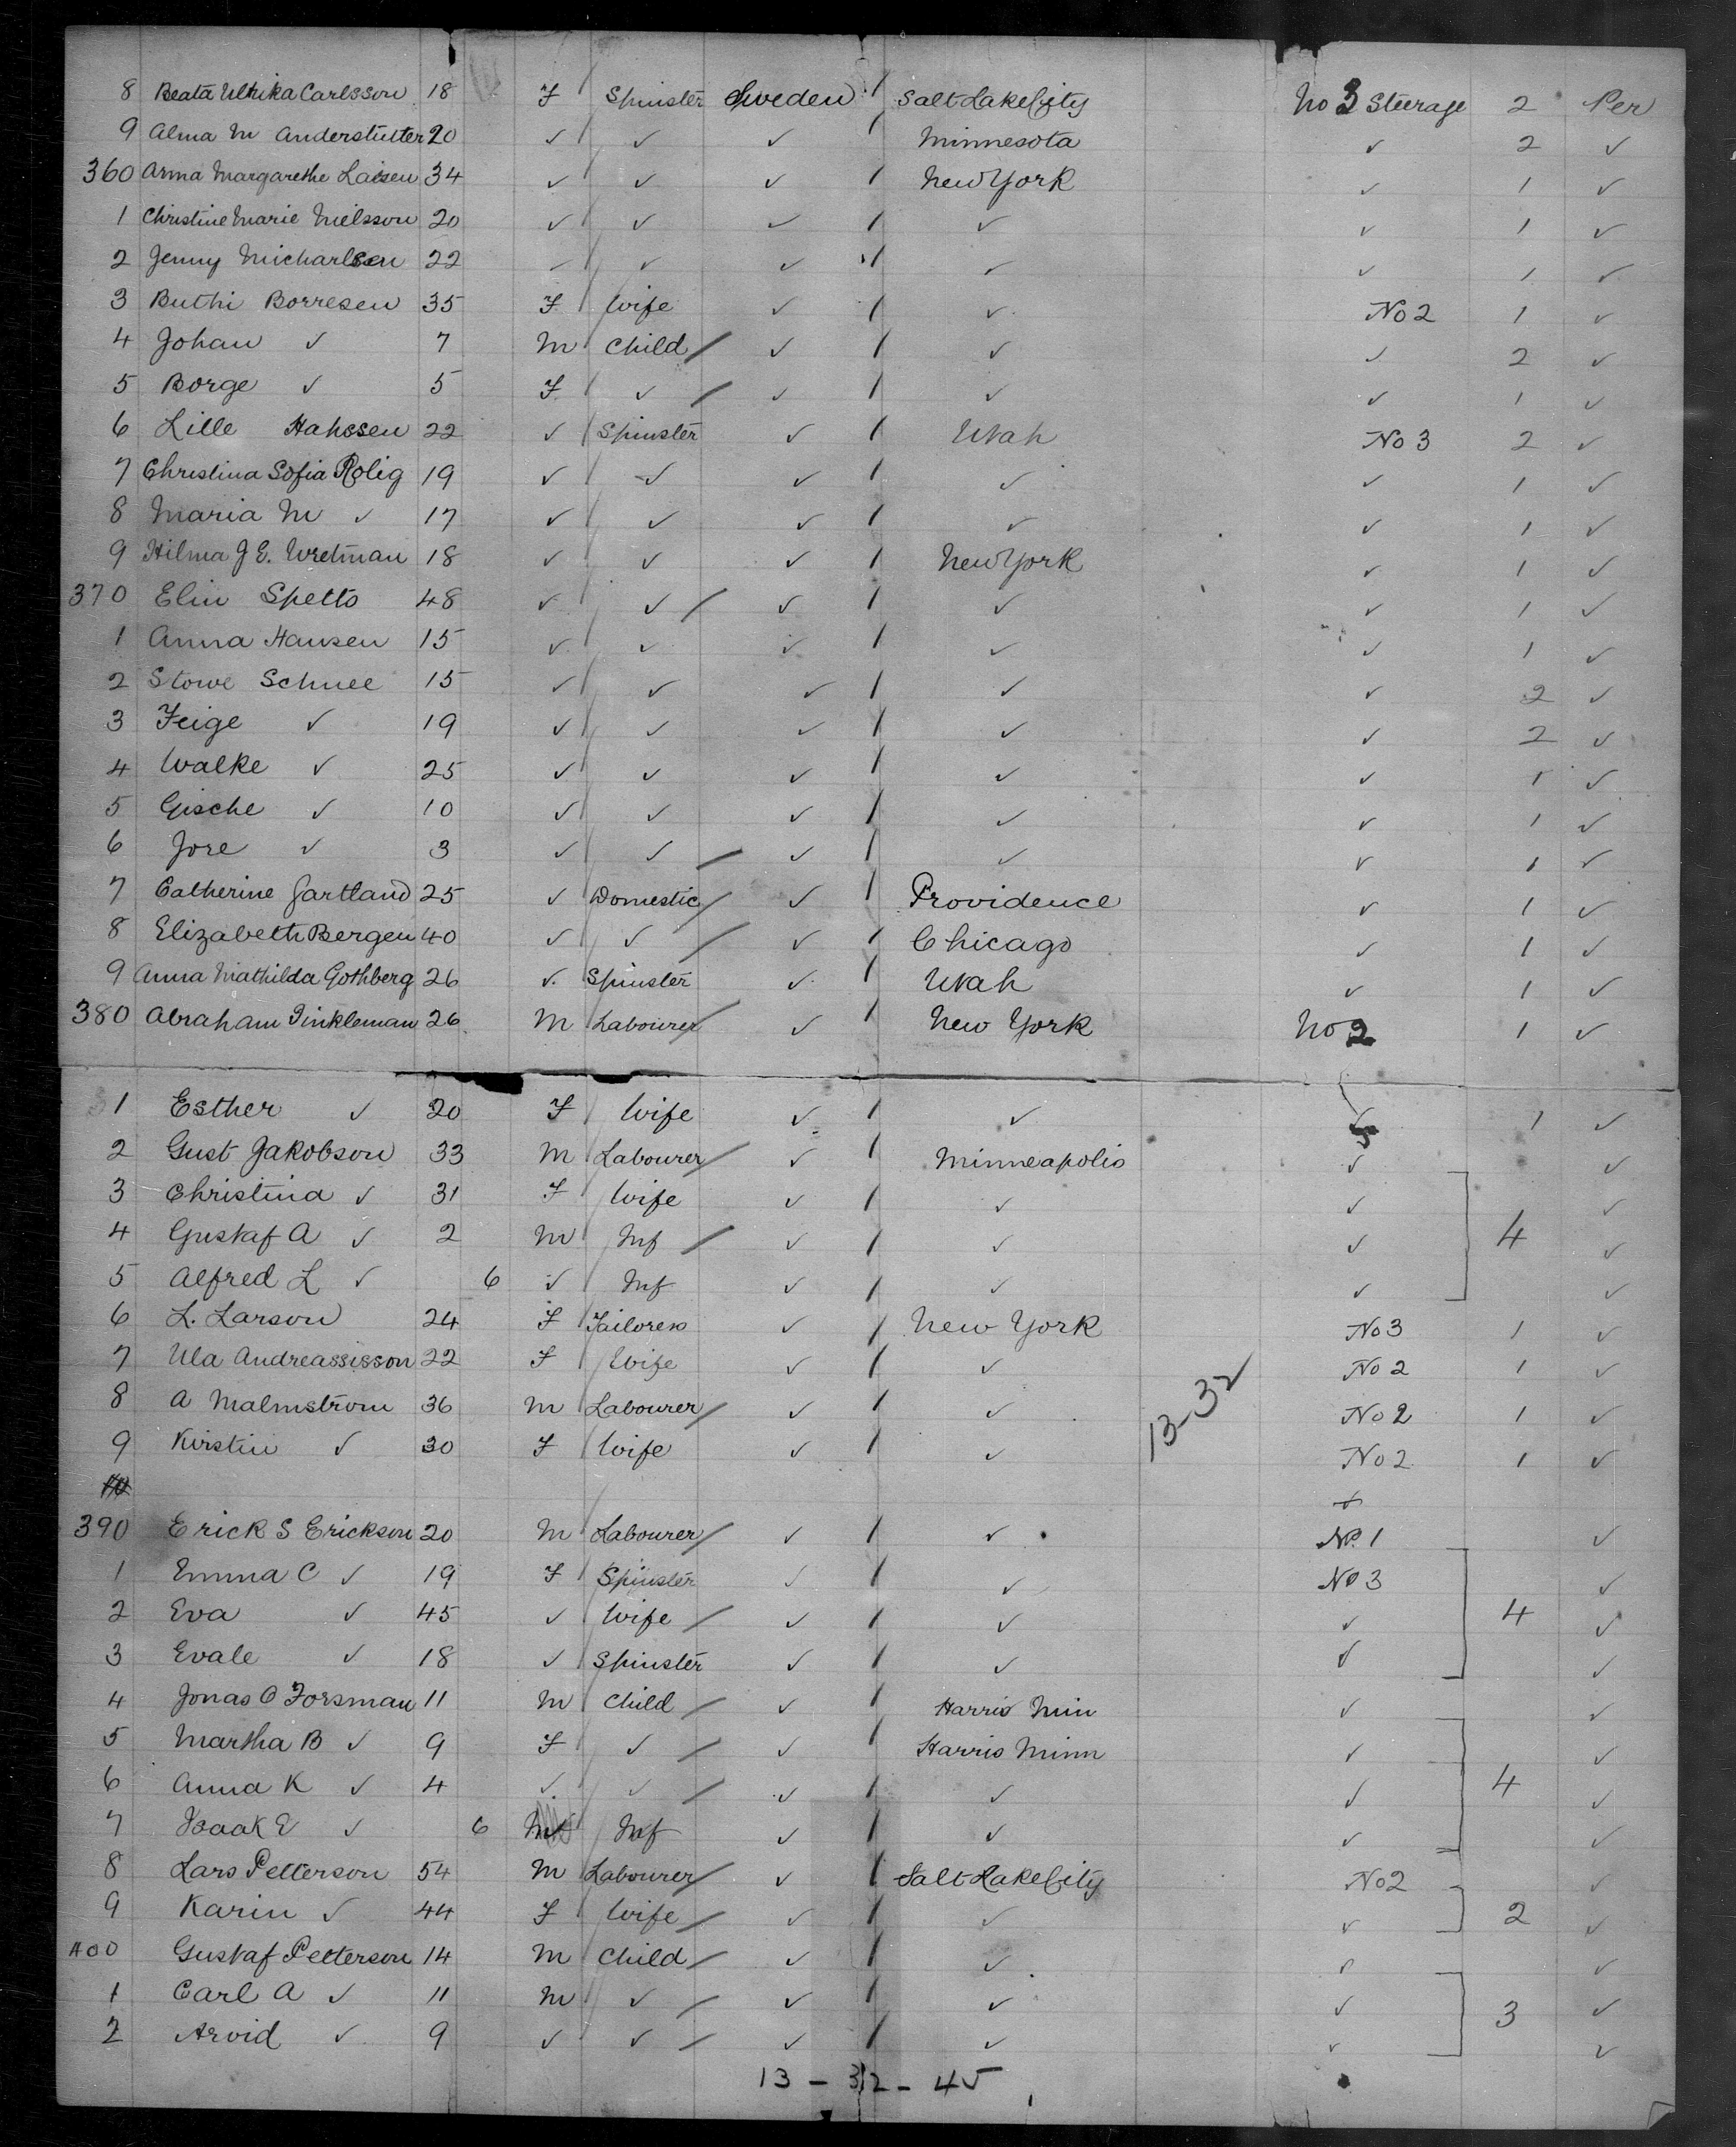 8 Beata Ulrika Carlsson 18 F Spinster Sweden Salt Lake City No 3 Steerage 2 Per
9 Alma M Anderstutter 20 ✓ ✓ ✓ Minnesota ✓ 2 ✓
360 Anna Margarethe Laisen 34 ✓ ✓ ✓ New York ✓ 1 ✓
1 Christine Marie Nielsson 20 ✓ ✓ ✓ ✓ ✓ 1 ✓
2 Jenny Micharlsen 22 ✓ ✓ ✓ ✓ ✓ 1 ✓
3 Buthi Borresen 35 F Wife ✓ ✓ No 2 1 ✓
4 Johan ✓ 7 M Child ✓ ✓ ✓ 2 ✓
5 Borge ✓ 5 F ✓ ✓ ✓ ✓ 1 ✓
6 Lille Hahssen 22 ✓ Spinster ✓ Utah No 3 2 ✓
7 Christina Sofia Rolig 19 ✓ ✓ ✓ ✓ ✓ 1 ✓
8 Maria M ✓ 17 ✓ ✓ ✓ ✓ ✓ 1 ✓
9 Hilma J E. Wretman 18 ✓ ✓ ✓ New York ✓ 1 ✓
370 Elin Spetts 48 ✓ ✓ ✓ ✓ ✓ 1 ✓
1 Anna Hansen 15 ✓ ✓ ✓ ✓ ✓ 1 ✓
2 Stowe Schnee 15 ✓ ✓ ✓ ✓ ✓ 2 ✓
3 Feige ✓ 19 ✓ ✓ ✓ ✓ ✓ 2 ✓
4 Walke ✓ 25 ✓ ✓ ✓ ✓ ✓ 1 ✓
5 Gische ✓ 10 ✓ ✓ ✓ ✓ ✓ 1 ✓
6 Jore ✓ 3 ✓ ✓ ✓ ✓ ✓ 1 ✓
7 Catherine Gartland 25 ✓ Domestic ✓ Providence ✓ 1 ✓
8 Elizabeth Bergen 40 ✓ ✓ ✓ Chicago ✓ 1 ✓
9 Anna Mathilda Gothberg 26 ✓ Spinster ✓ Utah ✓ 1 ✓
380 Abraham Finkleman 26 M Labourer ✓ New York No 2 1 ✓
1 Esther ✓ 20 F Wife ✓ ✓ ✓ 1 ✓
2 Gust Jakobson 33 M Labourer ✓ Minneapolis ✓ ✓
3 Christina ✓ 31 F Wife ✓ ✓ ✓ ✓
4 Gustaf A ✓ 2 M Inf ✓ ✓ ✓ 4 ✓
5 Alfred L ✓ 6 ✓ Inf ✓ ✓ ✓ ✓
6 L. Larson 24 F Tailoress ✓ New York No 3 1 ✓
7 Ula Andreassisson 22 F Wife ✓ ✓ No 2 1 ✓
8 A Malmstrom 36 M Labourer ✓ ✓ 13-32 No 2 1 ✓
9 Kirstin ✓ 30 F Wife ✓ ✓ No 2 1 ✓
390 Erick S Erickson 20 M Labourer ✓ ✓ No. 1 ✓
1 Emma C ✓ 19 F Spinster ✓ ✓ No 3 ✓
2 Eva ✓ 45 ✓ Wife ✓ ✓ ✓ 4 ✓
3 Evale ✓ 18 ✓ Spinster ✓ ✓ ✓ ✓
4 Jonas O Forsman 11 M Child ✓ Harris Min ✓ ✓
5 Martha B ✓ 9 F ✓ ✓ Harris Minn ✓ ✓
6 Anna K ✓ 4 ✓ ✓ ✓ ✓ ✓ 4 ✓
7 Isaak E ✓ 6 M Inf ✓ ✓ ✓ ✓
8 Lars Petterson 54 M Labourer ✓ Salt Lake City No 2 ✓
9 Karin ✓ 44 F Wife ✓ ✓ ✓ 2 ✓
400 Gustaf Petterson 14 M Child ✓ ✓ ✓ ✓
1 Carl A ✓ 11 M ✓ ✓ ✓ ✓ 3 ✓
2 Arvid ✓ 9 ✓ ✓ ✓ ✓ ✓ ✓
13 - 32 - 45